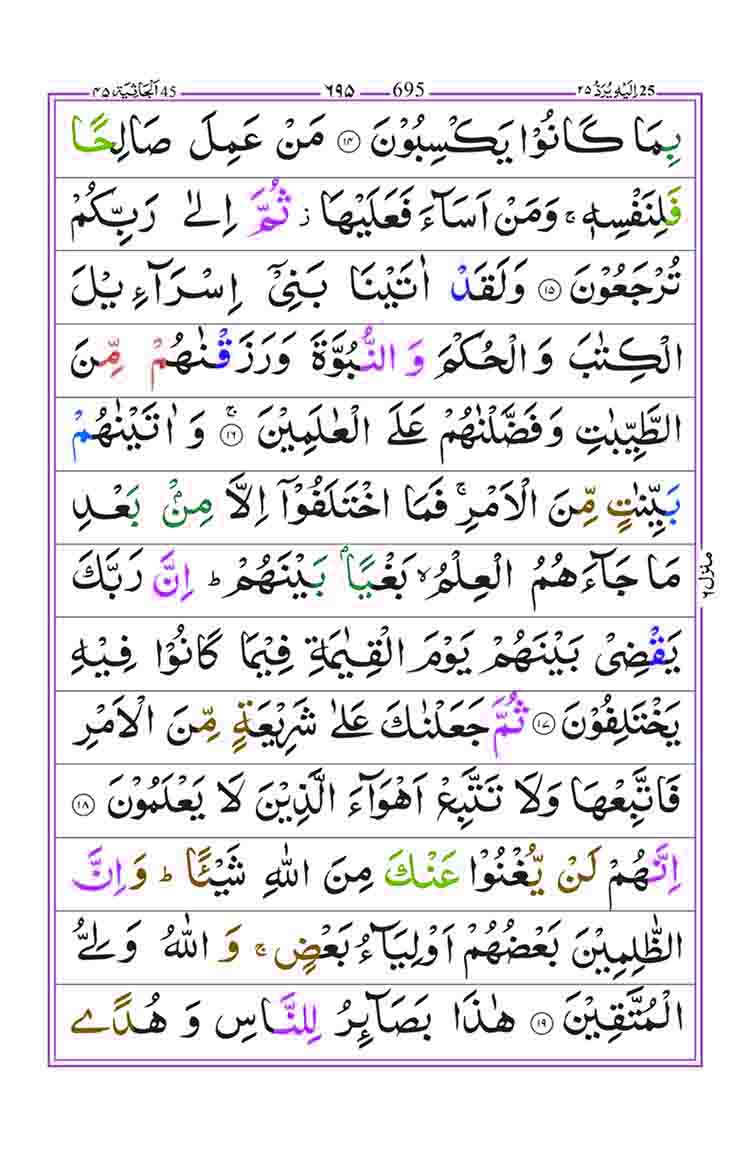 25 اِلَيْهِ يُرَدُّ ٢٥ 695 ٦٩٥ 45 اَلْجَاثِيَة ٤٥
بِمَا كَانُوْا يَكْسِبُوْنَ ١٤ مَنْ عَمِلَ صَالِحًا
فَلِنَفْسِهٖ ۚ وَمَنْ اَسَآءَ فَعَلَيْهَا ز ثُمَّ اِلٰى رَبِّكُمْ
تُرْجَعُوْنَ ١٥ وَلَقَدْ اٰتَيْنَا بَنِيْٓ اِسْرَآءِيْلَ
الْكِتٰبَ وَالْحُكْمَ وَالنُّبُوَّةَ وَرَزَقْنٰهُمْ مِّنَ
الطَّيِّبٰتِ وَفَضَّلْنٰهُمْ عَلَى الْعٰلَمِيْنَ ۚ ١٦ وَاٰتَيْنٰهُمْ
بَيِّنٰتٍ مِّنَ الْاَمْرِ ۚ فَمَا اخْتَلَفُوْٓا اِلَّا مِنْۢ بَعْدِ
مَا جَآءَهُمُ الْعِلْمُ ۙ بَغْيًاۢ بَيْنَهُمْ ؕ اِنَّ رَبَّكَ
يَقْضِيْ بَيْنَهُمْ يَوْمَ الْقِيٰمَةِ فِيْمَا كَانُوْا فِيْهِ
يَخْتَلِفُوْنَ ١٧ ثُمَّ جَعَلْنٰكَ عَلٰى شَرِيْعَةٍ مِّنَ الْاَمْرِ
فَاتَّبِعْهَا وَلَا تَتَّبِعْ اَهْوَآءَ الَّذِيْنَ لَا يَعْلَمُوْنَ ١٨
اِنَّهُمْ لَنْ يُّغْنُوْا عَنْكَ مِنَ اللّٰهِ شَيْـًٔا ؕ وَاِنَّ
الظّٰلِمِيْنَ بَعْضُهُمْ اَوْلِيَآءُ بَعْضٍ ۚ وَاللّٰهُ وَلِيُّ
الْمُتَّقِيْنَ ١٩ هٰذَا بَصَآئِرُ لِلنَّاسِ وَهُدًى
منزل ٦